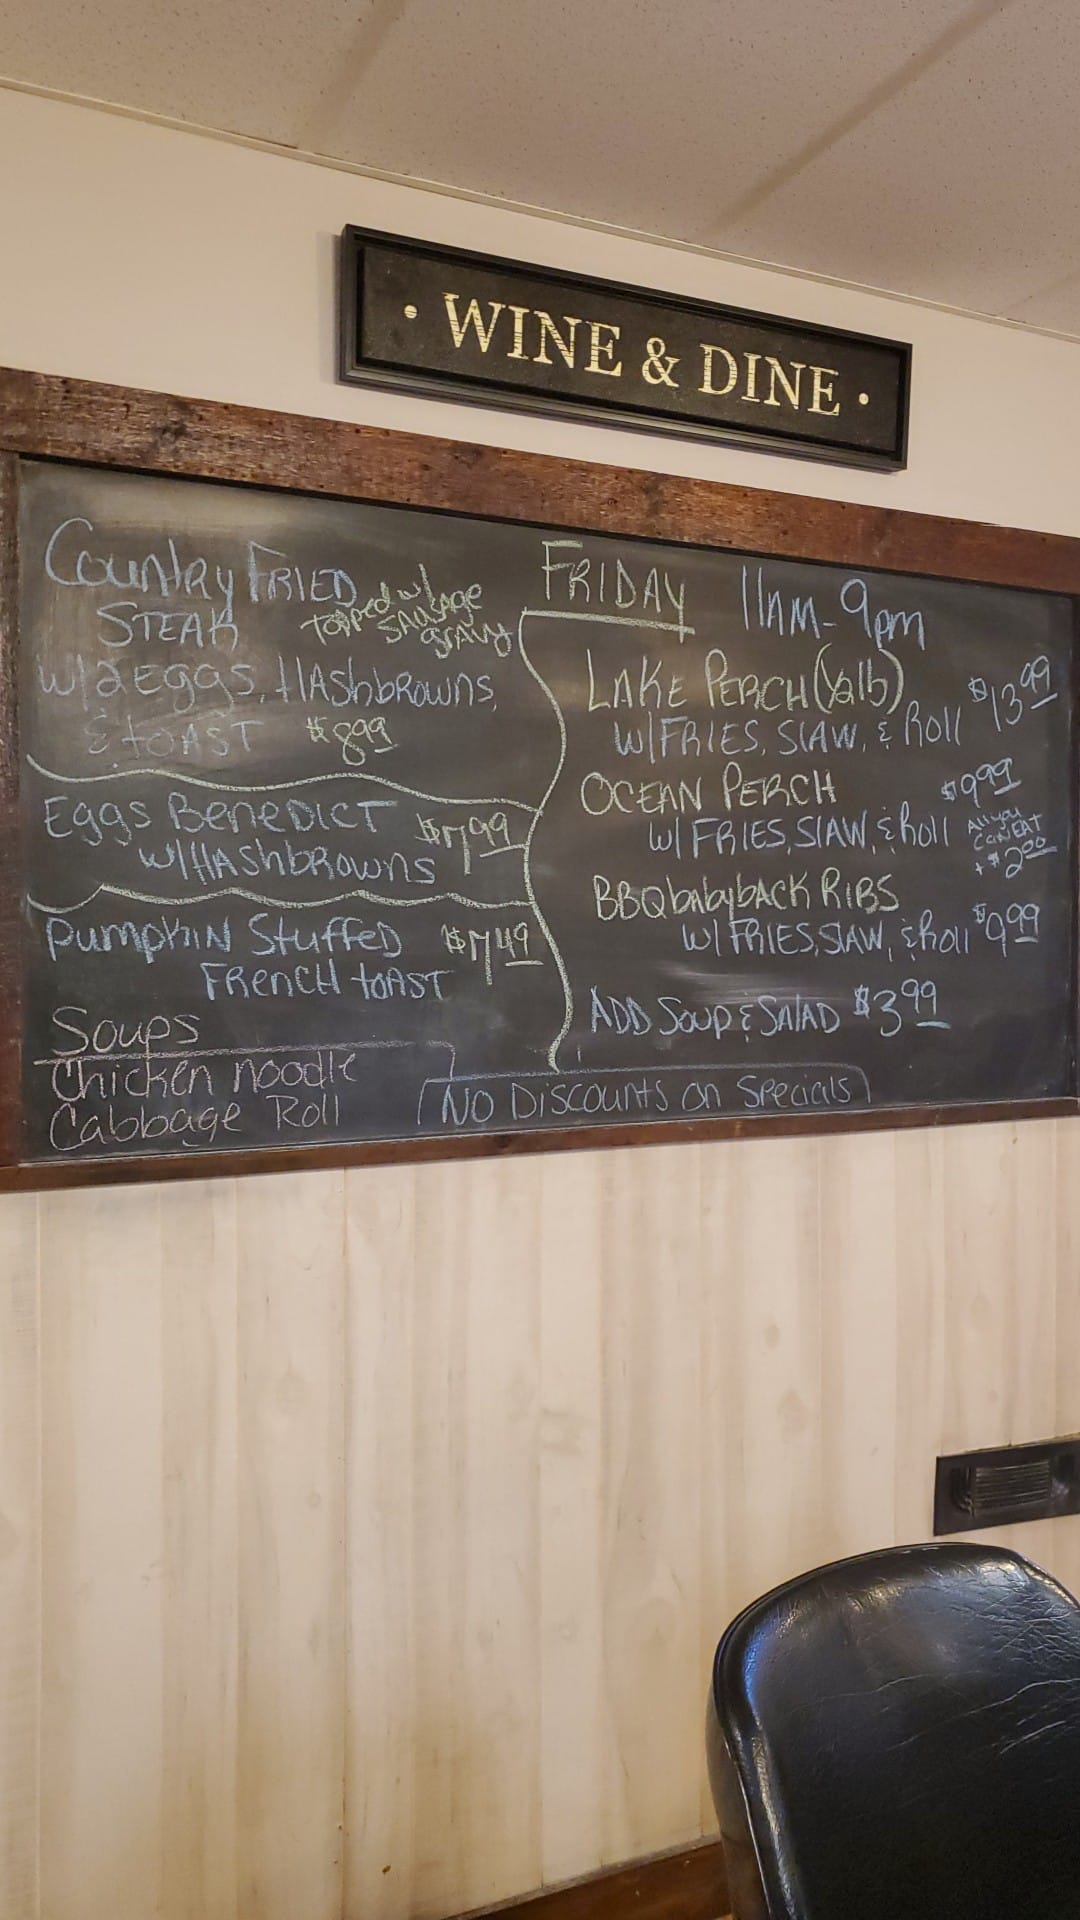 • WINE & DINE •
Country FRIED
STEAK
topped w/
SAUSAGE
gravy
w/2 Eggs, HAshbRowns,
& toAST $8.99
Eggs BeneDICT $7.99
w/HAShbRowns
Pumpkin StuffeD $7.49
FRenCH toAST
Soups
Chicken noodle
Cabbage Roll
FRIDAY 11AM-9pm
LAKE PERCH (1/2lb) $13.99
w/FRIES, SlAW, & Roll
OCEAN PERCH $9.99
w/ FRIES, SlAW, & Roll
All you
can EAT
+ $2.00
BBQ babybACK RIBS
w/ FRIES, SlAW, & Roll $9.99
ADD Soup & SAlAD $3.99
NO DISCOUNTS on Specials